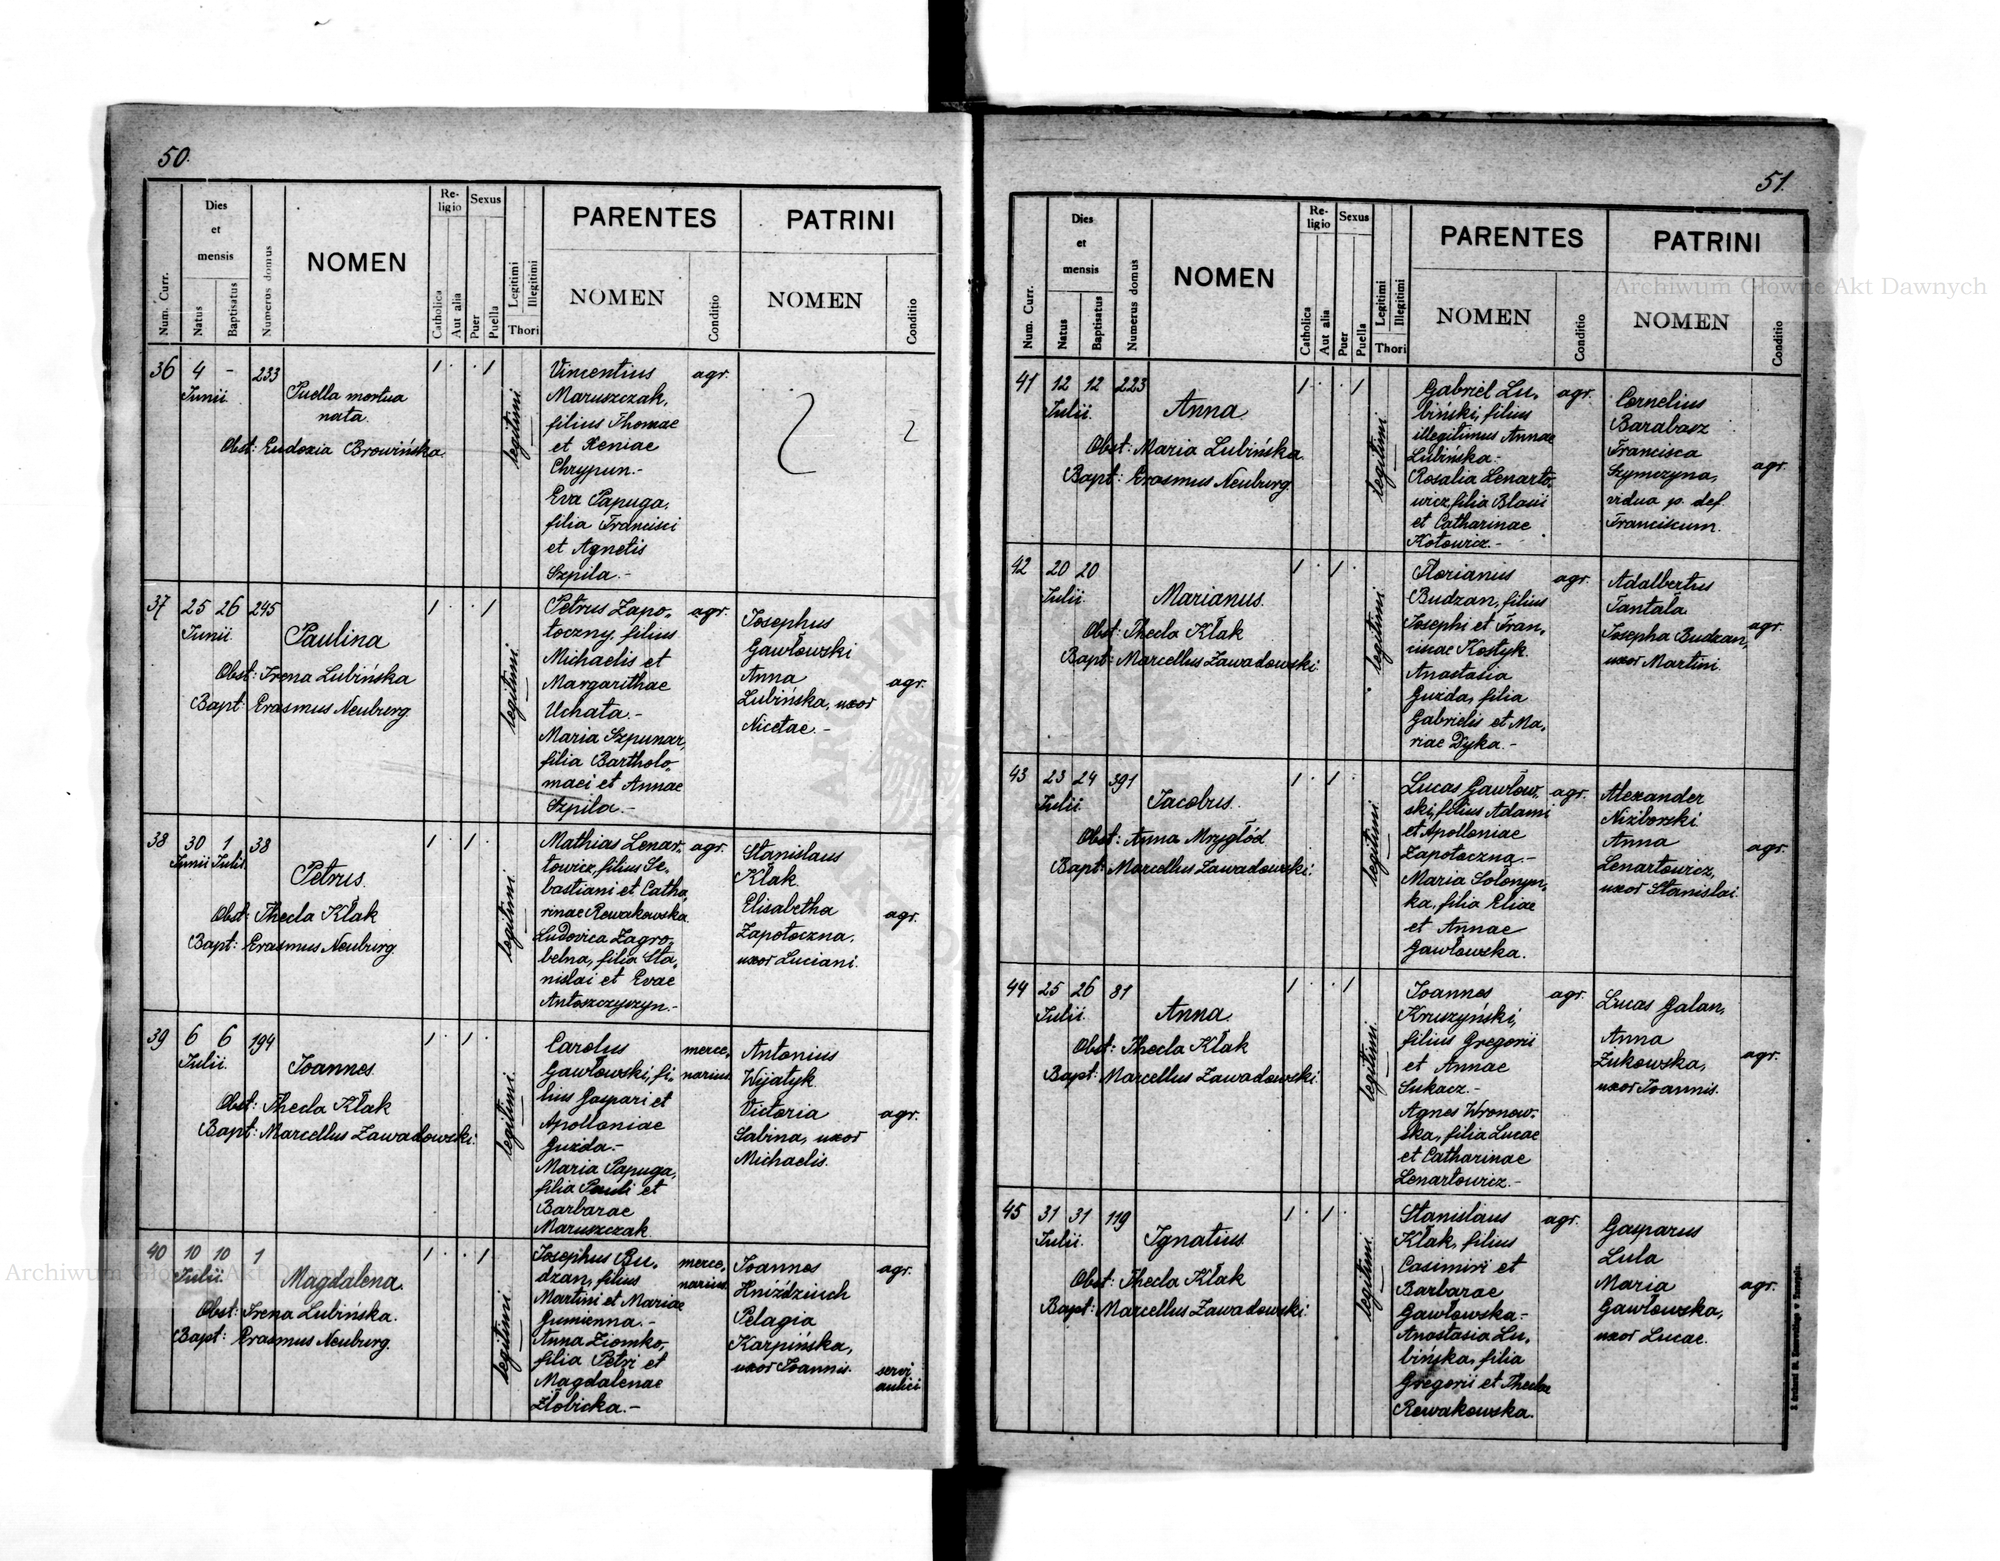 50.
Num. Curr.
Dies
et
mensis
Natus
Baptisatus
Numerus domus
NOMEN
Re-
ligio
Catholica
Aut alia
Sexus
Puer
Puella
Legitimi
Illegitimi
Thori
PARENTES
NOMEN
Conditio
PATRINI
NOMEN
Conditio
36 4 - 233
Junii
Puella mortua
nata.
Obst: Eudoxia Browińska.
legitimi
Vincentius
Maruszczak,
filius Thomae
et Xeniae
Chrypun.-
Eva Papuga,
filia Francisci
et Agnetis
Szpila.-
agr.
37 25 26 245
Junii
Paulina
Obst: Irena Lubińska
Bapt: Erasmus Neuburg.
legitimi
Petrus Zapo-
toczny, filius
Michaelis et
Margarithae
Uchata.-
Maria Szpunar,
filia Bartholo-
maei et Annae
Szpila.-
agr.
Josephus
Gawłowski
Anna
Lubińska, uxor
Nicetae.-
agr.
38 30 1 38
Junii Julii
Petrus.
Obst: Thecla Kłak
Bapt: Erasmus Neuburg.
legitimi
Mathias Lenar-
towicz, filius Se-
bastiani et Catha-
rinae Rewakowska.
Ludovica Zagro-
belna, filia Sta-
nislai et Evae
Antoszczyszyn.-
agr.
Stanislaus
Kłak.
Elisabetha
Zapotoczna,
uxor Luciani.
agr.
39 6 6 194
Julii.
Joannes
Obst: Thecla Kłak
Bapt: Marcellus Zawadowski.
legitimi
Carolus
Gawłowski, fi-
lius Gaspari et
Apolloniae
Guzda.-
Maria Papuga,
filia Pauli et
Barbarae
Maruszczak
merce-
narius.
Antonius
Wijatyk
Victoria
Sabina, uxor
Michaelis.
agr.
40 10 10 1
Julii
Magdalena.
Obst: Irena Lubińska.
Bapt: Erasmus Neuburg.
legitimi
Josephus Bu-
dzan, filius
Martini et Mariae
Gumienna.-
Anna Ziomko,
filia Petri et
Magdalenae
Złobicka.-
merce-
narius.
Joannes
Hniździuch
Pelagia
Karpińska,
uxor Joannis.
agr.
servi
aulici
51.
Num. Curr.
Dies
et
mensis
Natus
Baptisatus
Numerus domus
NOMEN
Re-
ligio
Catholica
Aut alia
Sexus
Puer
Puella
Legitimi
Illegitimi
Thori
PARENTES
NOMEN
Conditio
PATRINI
NOMEN
Conditio
41 12 12 223
Julii.
Anna
Obst: Maria Lubińska.
Bapt: Erasmus Neuburg.
legitimi
Gabriel Lu-
biński, filius
illegitimus Annae
Lubińska.-
Rosalia Lenarto-
wicz, filia Blasii
et Catharinae
Kotowicz.-
agr.
Cornelius
Barabasz
Francisca
Szymczyna,
vidua p. def.
Franciscum.
agr.
42 20 20
Julii.
Marianus.
Obst: Thecla Kłak
Bapt: Marcellus Zawadowski.
legitimi
Florianus
Budzan, filius
Josephi et Fran-
ciscae Kostyk.
Anastasia
Guzda, filia
Gabrielis et Ma-
riae Dyka.-
agr.
Adalbertus
Tantala
Josepha Budzan,
uxor Martini.
agr.
43 23 24 391
Julii
Jacobus.
Obst: Anna Mrzygłód
Bapt: Marcellus Zawadowski.
legitimi
Lucas Gawłow-
ski, filius Adami
et Apolloniae
Zapotoczna.-
Maria Solonyn-
ka, filia Eliae
et Annae
Gawłowska.
agr.
Alexander
Niżborski.
Anna
Lenartowicz,
uxor Stanislai.
agr.
44 25 26 81
Julii.
Anna
Obst: Thecla Kłak
Bapt: Marcellus Zawadowski.
legitimi
Joannes
Kruszyński,
filius Gregorii
et Annae
Sukacz.-
Agnes Wronow-
ska, filia Lucae
et Catharinae
Lenartowicz.-
agr.
Lucas Galan,
Anna
Zukowska,
uxor Joannis.
agr.
45 31 31 119
Julii.
Ignatius
Obst: Thecla Kłak
Bapt: Marcellus Zawadowski.
legitimi
Stanislaus
Kłak, filius
Casimiri et
Barbarae
Gawłowska.-
Anastasia Lu-
bińska, filia
Gregorii et Theclae
Rewakowska.
agr.
Gasparus
Lula
Maria
Gawłowska,
uxor Lucae.
agr.
Archiwum Główne Akt Dawnych
Archiwum Główne Akt Dawnych